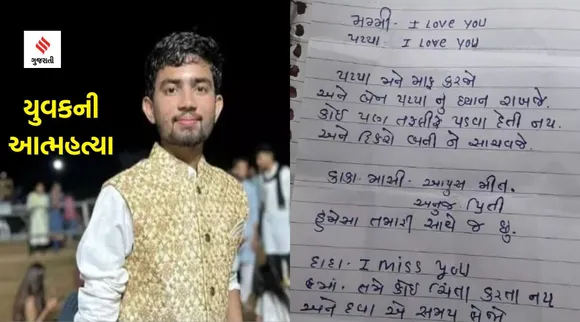 ગુજરાતી
યુવકની
આત્મહત્યા
મમ્મી - I Love you
પપ્પા - I Love You
પપ્પા મને માફ કરજો
અને બેન પપ્પા નુ ધ્યાન રાખજે.
કોઈ પણ તકલીફ પડવા દેતી નય.
અને દિકરો બની ને સાચવજે.
કાકા. માસી. આયુસ મીન.
અનુજ પ્રિતી
હંમેસા તમારી સાથે જ છુ.
દાદા - I miss you
તમે કોઈ ચિંતા કરતા નય
અને દવા એ સમય લેજો